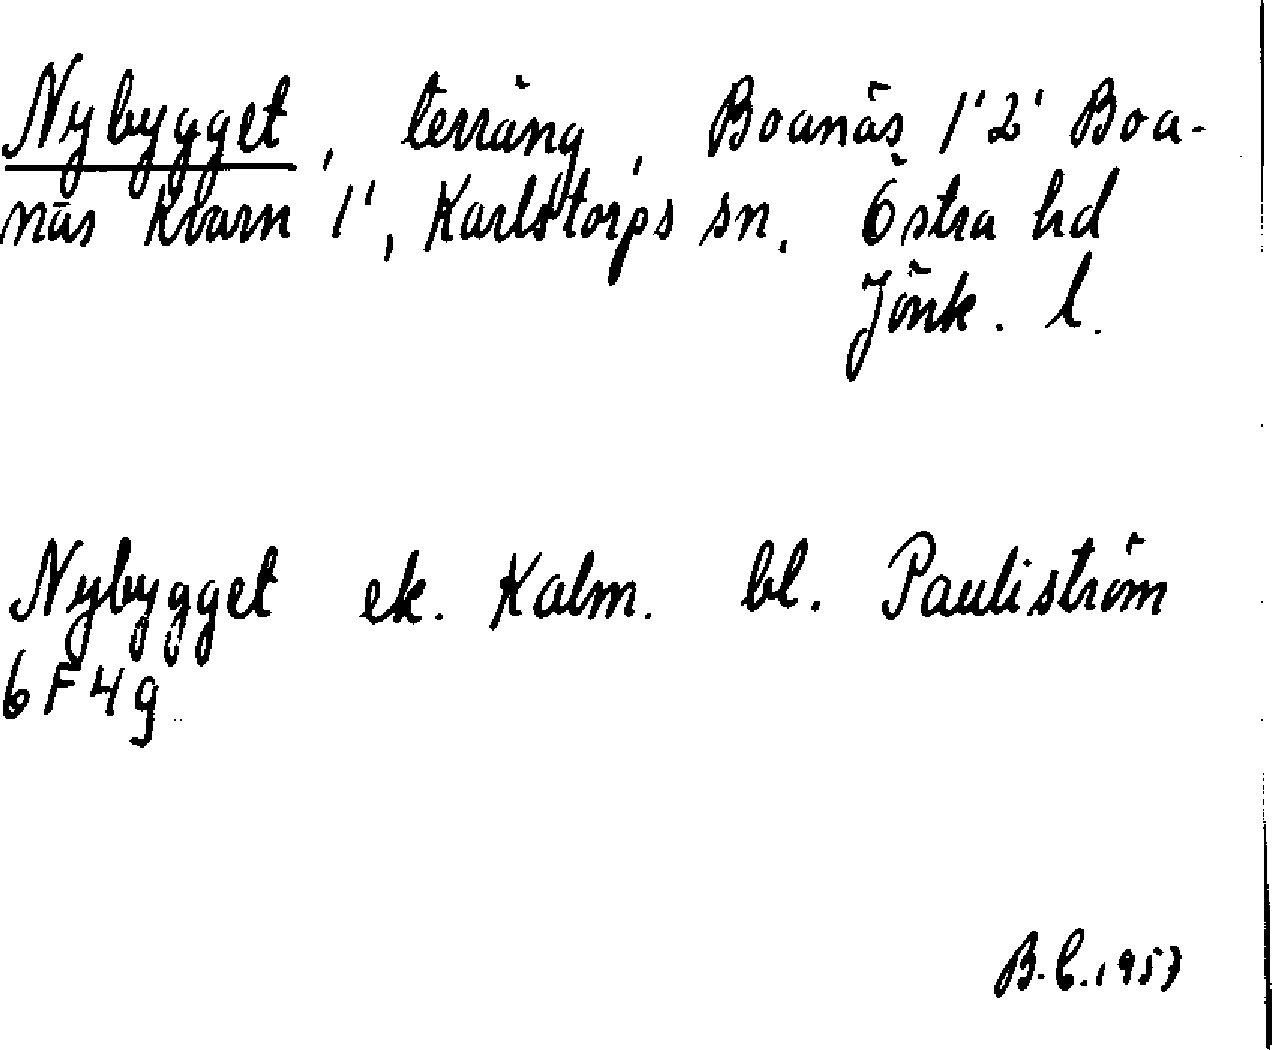 Nybygget, terräng, Boanäs 1' 2' Boa-
näs kvarn 1', Karlstorps sn. Östra hd
Jönk. l.
Nybygget ek. Kalm. bl. Pauliström
6F4g
B.C. 1957